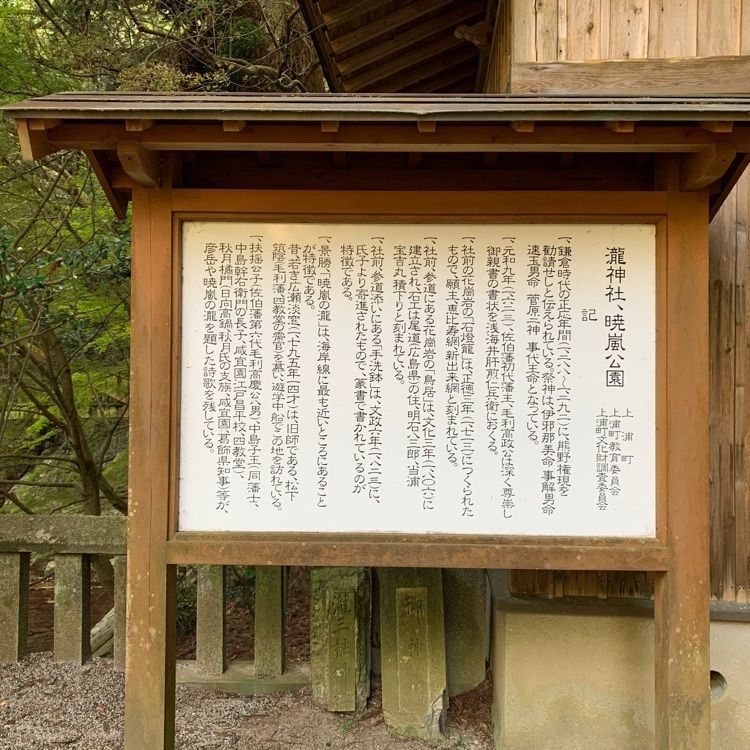 瀧神社、暁嵐公園
記
上浦町
上浦町教育委員会
上浦町文化財調査委員会
一、鎌倉時代の正応年間(一二八八〜一二九二)に、熊野権現を
勧請せしと伝えられている。祭神は、伊邪那美命 事解男命
速玉男命 菅原三神 事代主命となっている。
一、元和九年(一六二三)、佐伯藩初代藩主、毛利高政公は深く尊崇し
御親書の書状を、浅海井肝煎仁兵衛におくる。
一、社前の花崗岩の「石燈籠」は、正徳三年(一七一三)につくられた
もので、願主、恵比寿網、新出来網と刻まれている。
一、社前、参道にある花崗岩の「鳥居」は、文化三年(一八〇六)に
建立され、石工は尾道(広島県)の住、明石八三郎、当浦
宝吉丸積下りと刻まれている。
一、社前、参道添いにある「手洗鉢」は、文政六年(一八二三)に、
氏子より寄進されたもので、篆書で書かれているのが
特徴である。
一、景勝、「暁嵐の瀧」は、海岸線に最も近いところにあること
が特徴である。
昔、若き広瀬淡窓(一七九五年一四才)は、旧師である、松下
筑陰(毛利藩、四教堂の儒官)を慕い、遊学中船でこの地を訪れている。
一、扶揺公子(佐伯藩第六代毛利高慶公八男)、中島子玉(同藩士、
中島幹右衛門の長子、咸宜園、江戸昌平校、四教堂)、
秋月橘門(日向高鍋秋月氏の支族、咸宜園、葛飾県知事)等が、
彦岳や暁嵐の瀧を題した詩歌を残している。
瀧三社
御神